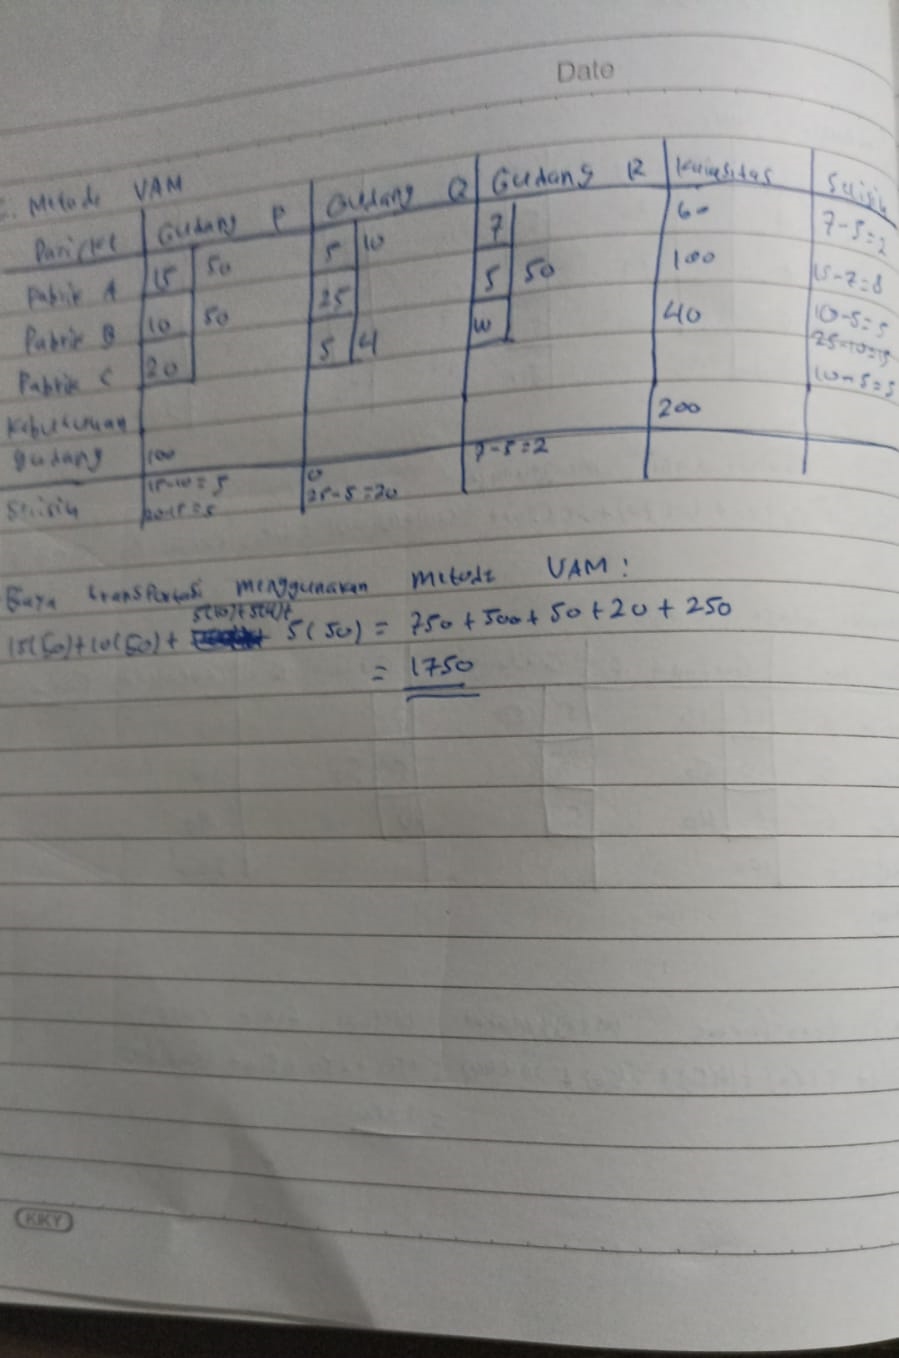 Date
Metode VAM
Gudang P Gudang Q Gudang R Kapasitas Selisih
Pabrik A 15 50 5 10 7 60 7-5=2
Pabrik B 10 50 25 5 50 100 15-7=8
Pabrik C 20 5 4 10 40 10-5=5
25-10=15
Kebutuhan 10-5=5
gudang 100 200
Selisih 15-10=5 0 7-5=2
20-15=5 25-5=20
Biaya transportasi menggunakan metode VAM:
15(50)+10(50)+ 5(10)+5(4)+ 5(50) = 750+500+50+20+250
= 1750
KKY